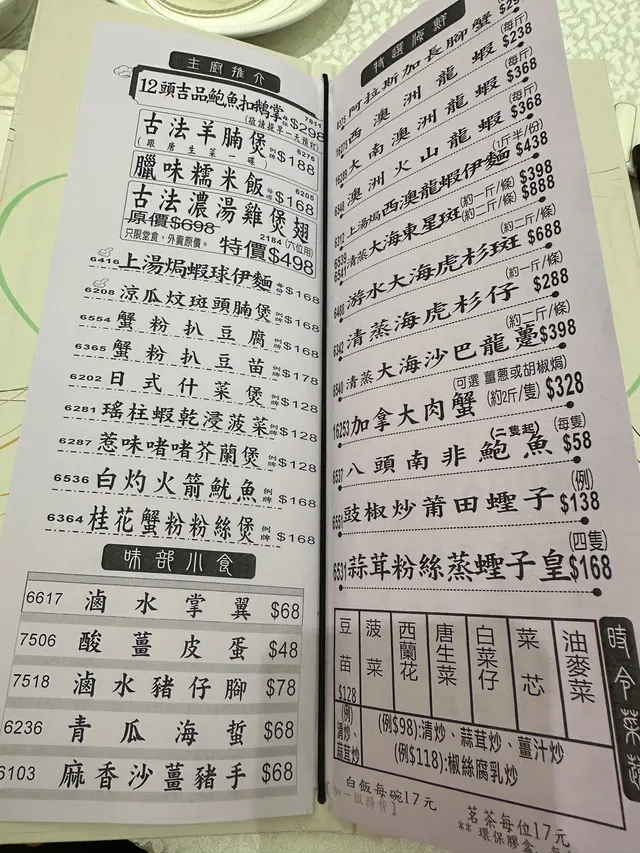 主廚推介
12頭吉品鮑魚扣鵝掌 $298
(敬請提早一天預訂)
古法羊腩煲 例牌 6276 $188
(跟唐生菜一碟)
臘味糯米飯 6205 $168
古法濃湯雞煲翅
原價$698 2184 (六位用)
只限堂食,外賣原價。 特價$498
6416 上湯焗蝦球伊麵 $168
6208 涼瓜炆斑頭腩煲 例牌 $168
6554 蟹粉扒豆腐 例牌 $168
6365 蟹粉扒豆苗 例牌 $178
6202 日式什菜煲 例牌 $128
6281 瑤柱蝦乾浸菠菜 例牌 $128
6287 惹味啫啫芥蘭煲 例牌 $128
6536 白灼火箭魷魚 例牌 $168
6364 桂花蟹粉粉絲煲 例牌 $168
味部小食
6617 滷水掌翼 $68
7506 酸薑皮蛋 $48
7518 滷水豬仔腳 $78
6236 青瓜海蜇 $68
6103 麻香沙薑豬手 $68
特選海鮮
阿拉斯加長腳蟹
西澳洲龍蝦 (每斤) $238
大南澳洲龍蝦 (每斤) $368
澳洲火山龍蝦 (每斤) $368
上湯焗西澳龍蝦伊麵 (1斤半/份) $438
清蒸大海東星斑 (約一斤/條) $398
(約二斤/條) $888
游水大海虎杉斑 (約二斤/條) $688
6342 清蒸海虎杉仔 (約一斤/條) $288
6540 清蒸大海沙巴龍躉 (約二斤/條) $398
(可選 薑蔥或胡椒焗)
16253 加拿大肉蟹 (約2斤/隻) $328
6537 八頭南非鮑魚 (二隻起) (每隻) $58
6551 豉椒炒莆田蟶子 (例) $138
6531 蒜茸粉絲蒸蟶子皇 (四隻) $168
時令菜
豆苗 $128
菠菜
西蘭花
唐生菜
白菜仔
菜芯
油麥菜
(例) 清炒、蒜茸炒
(例$98):清炒、蒜茸炒、薑汁炒
(例$118):椒絲腐乳炒
白飯每碗17元
加一服務費】
茗茶每位17元
**環保膠盒